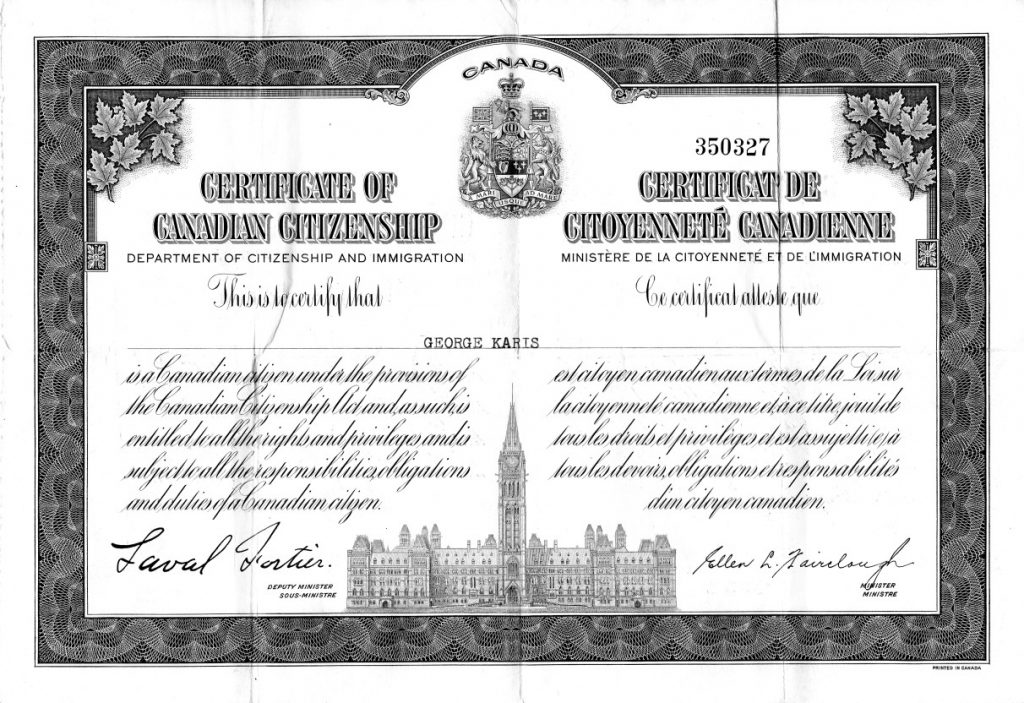 CANADA
350327
A MARI USQUE AD MARE
CERTIFICATE OF
CANADIAN CITIZENSHIP
DEPARTMENT OF CITIZENSHIP AND IMMIGRATION
This is to certify that
CERTIFICAT DE
CITOYENNETÉ CANADIENNE
MINISTÈRE DE LA CITOYENNETÉ ET DE L'IMMIGRATION
Ce certificat atteste que
GEORGE KARIS
is a Canadian citizen under the provisions of
the Canadian Citizenship Act and, as such, is
entitled to all the rights and privileges and is
subject to all the responsibilities, obligations
and duties of a Canadian citizen.
est citoyen canadien aux termes de la Loi sur
la citoyenneté canadienne et, à ce titre, jouit de
tous les droits et privilèges et est assujetti(e) à
tous les devoirs, obligations et responsabilités
d'un citoyen canadien.
Laval Fortier.
DEPUTY MINISTER
SOUS-MINISTRE
Ellen L. Fairclough
MINISTER
MINISTRE
PRINTED IN CANADA